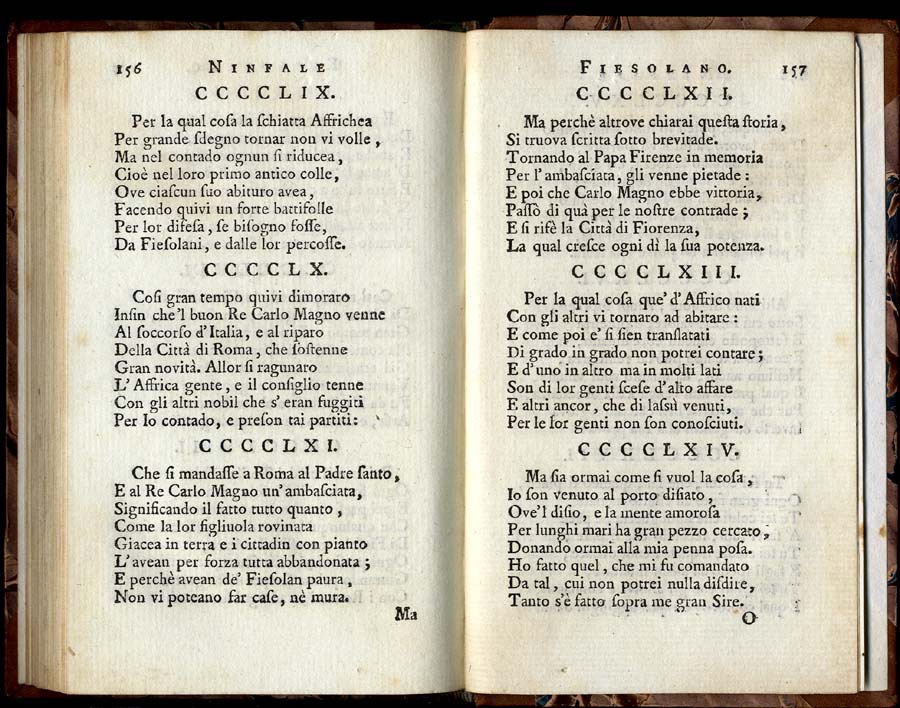 156 NINFALE
CCCCLIX.
Per la qual coſa la ſchiatta Affrichea
Per grande ſdegno tornar non vi volle,
Ma nel contado ognun ſi riducea,
Cioè nel loro primo antico colle,
Ove ciaſcun ſuo abituro avea,
Facendo quivi un forte battifolle
Per lor difeſa, ſe biſogno foſſe,
Da Fieſolani, e dalle lor percoſſe.
CCCCLX.
Coſi gran tempo quivi dimoraro
Inſin che'l buon Re Carlo Magno venne
Al ſoccorſo d'Italia, e al riparo
Della Città di Roma, che ſoſtenne
Gran novità. Allor ſi ragunaro
L'Affrica gente, e il conſiglio tenne
Con gli altri nobil che s'eran fuggiti
Per lo contado, e preſon tai partiti:
CCCCLXI.
Che ſi mandaſſe a Roma al Padre ſanto,
E al Re Carlo Magno un'ambaſciata,
Significando il fatto tutto quanto,
Come la lor figliuola rovinata
Giacea in terra e i cittadin con pianto
L'avean per forza tutta abbandonata;
E perchè avean de' Fieſolan paura,
Non vi poteano far caſe, nè mura.
Ma
FIESOLANO. 157
CCCCLXII.
Ma perchè altrove chiarai queſta ſtoria,
Si truova ſcritta ſotto brevitade.
Tornando al Papa Firenze in memoria
Per l'ambaſciata, gli venne pietade:
E poi che Carlo Magno ebbe vittoria,
Paſſò di quà per le noſtre contrade;
E ſi rifè la Città di Fiorenza,
La qual creſce ogni dì la ſua potenza.
CCCCLXIII.
Per la qual coſa que' d'Affrico nati
Con gli altri vi tornaro ad abitare:
E come poi e' ſi ſien tranſlatati
Di grado in grado non potrei contare;
E d'uno in altro ma in molti lati
Son di lor genti ſceſe d'alto affare
E altri ancor, che di laſsù venuti,
Per le lor genti non ſon conoſciuti.
CCCCLXIV.
Ma ſia ormai come ſi vuol la coſa,
Io ſon venuto al porto diſiato,
Ove'l diſio, e la mente amoroſa
Per lunghi mari ha gran pezzo cercato,
Donando ormai alla mia penna poſa.
Ho fatto quel, che mi fu comandato
Da tal, cui non potrei nulla diſdire,
Tanto s'è fatto ſopra me gran Sire.
O